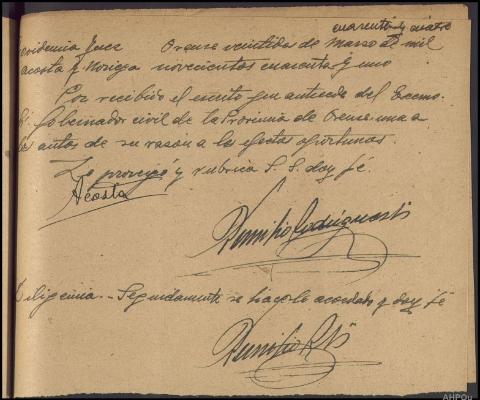 cuarenta y cuatro
rovidencia Juez Orense veintidos de Marzo de mil
Acosta y Noriega novecientos cuarenta y uno
Por recibido el escrito que antecede del Excmo.
Sr. Gobernador civil de la Provincia de Orense una a
los autos de su razón a los efectos oportunos.
Lo proveyó y rubrica S. S. doy fé.
Acosta
Diligencia.- Seguidamente se hace lo acordado y doy fé
AHPOu